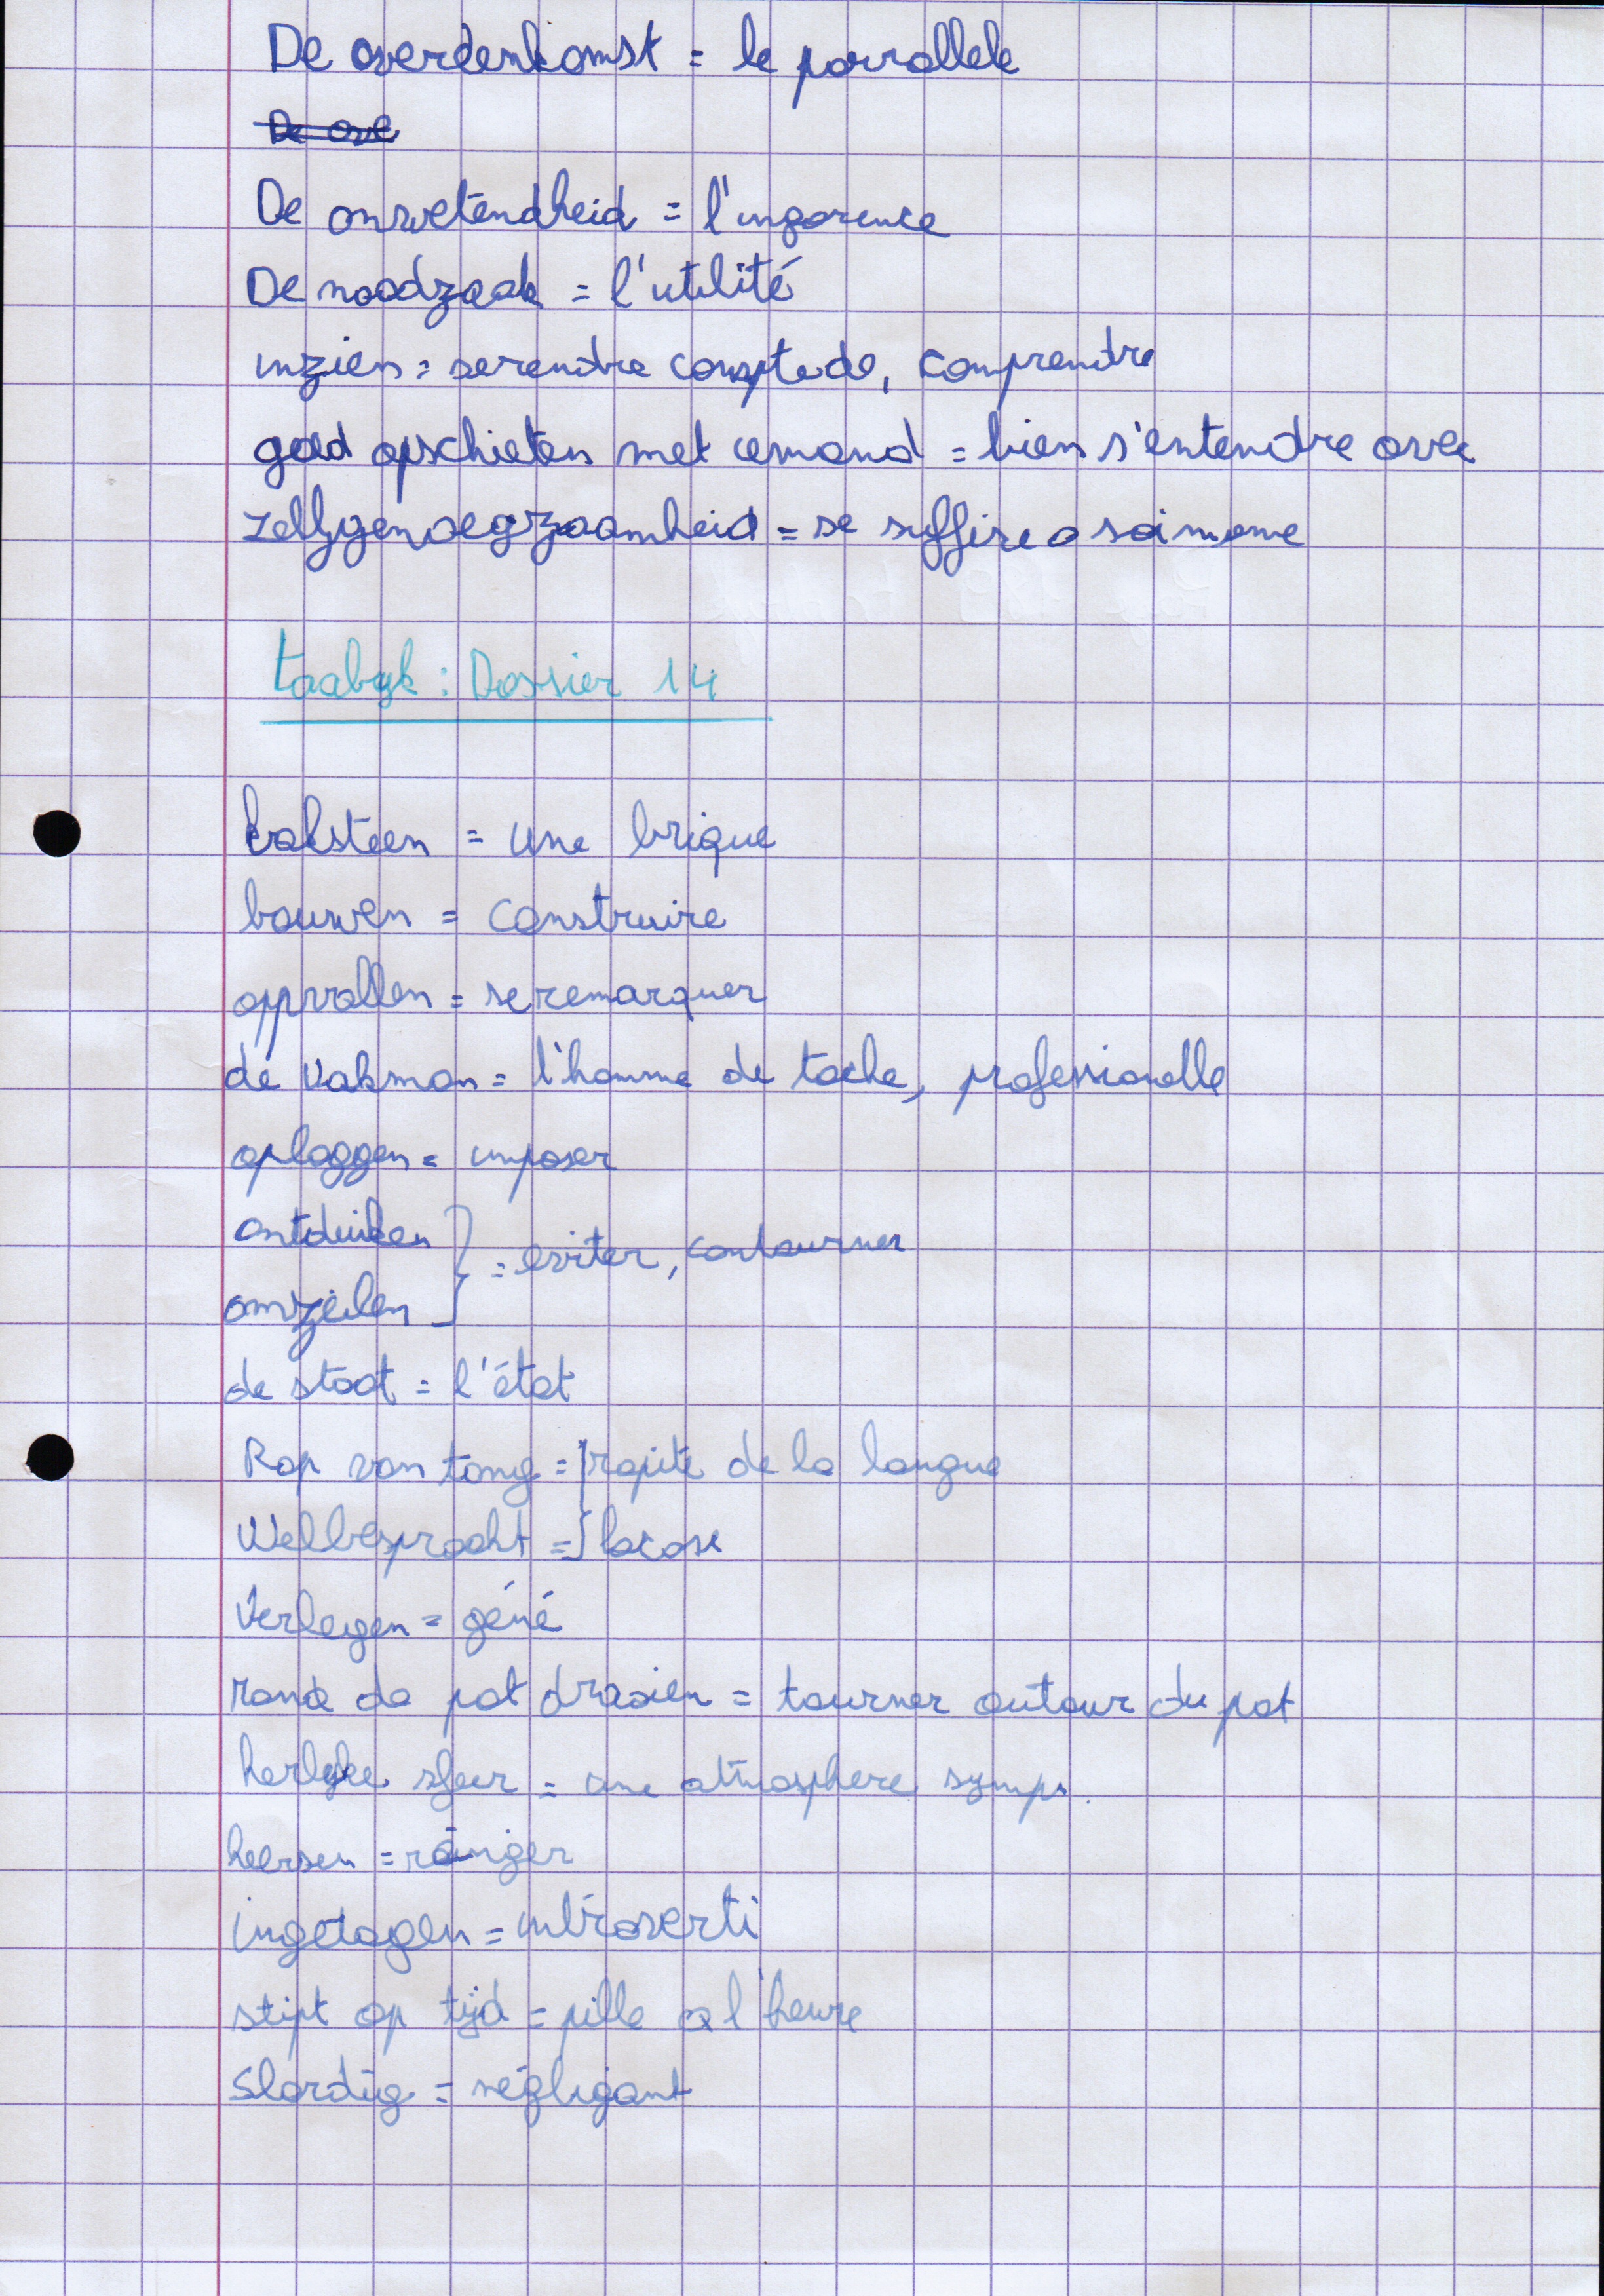 De overeenkomst = le parrallele
De ove
De onwetendheid = l'ingorence
De noodzaak = l'utilité
inzien = se rendre compte de, comprendre
goed opschieten met iemand = bien s'entendre avec
zelfgenoegzaamheid = se suffire a soi meme
taabyk : Dossier 14
baksteen = une brique
bouwen = construire
oppvallen = se remarquer
de vakman = l'homme de tache, professionelle
opleggen = imposer
ontduiken
omzeilen } = eviter, contourner
de staat = l'état
Rap van tong = rapite de la langue
Welbespraakt = } locase
Verlegen = géné
rond de pot draaien = tourner autour du pot
herlyke sfeer = une atmosphere symps.
heersen = rèinger
ingetogen = introverti
stipt op tijd = pille a l'heure
Slordig = négligant